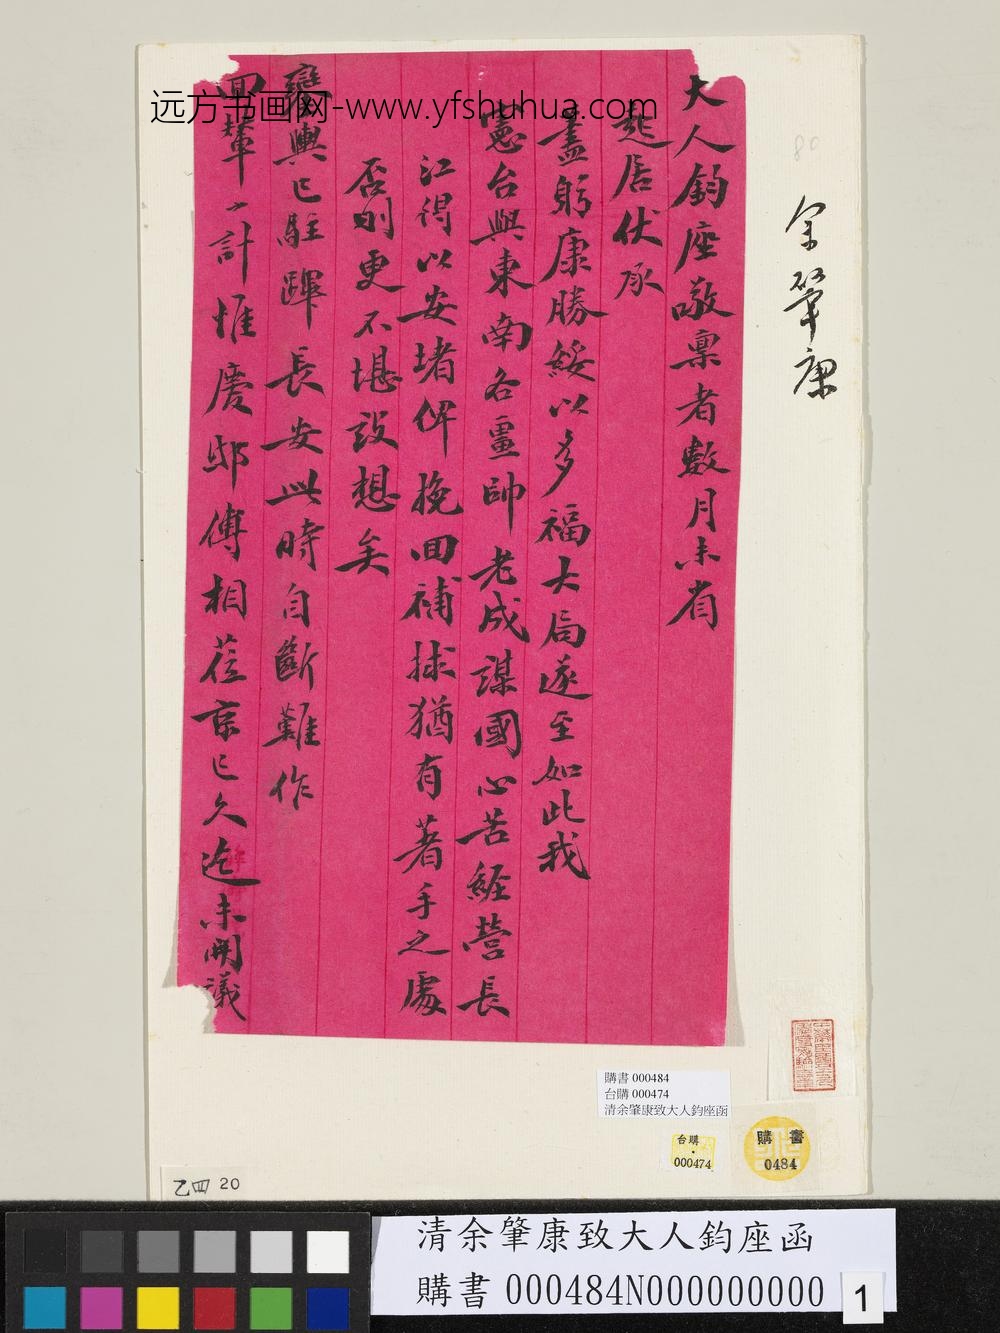 远方书画网-www.yfshuhua.com
80
余肇康
大人鈞座敬稟者數月未省
起居伏承
藎躬康勝綏以多福大局遂至如此我
憲台與東南各畺帥老成謀國心苦經營長
江得以安堵俾挽回補捄猶有著手之處
否則更不堪設想矣
鑾輿已駐蹕長安此時自斷難作
回輦之計惟慶邸傅相蒞京已久迄未開議
購書 000484
台購 000474
清余肇康致大人鈞座函
台購
000474
購書
0484
乙四 20
清余肇康致大人鈞座函
購書 000484N000000000
1